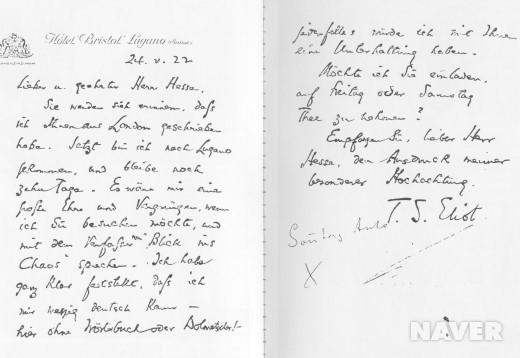 Hôtel Bristol, Lugano (Suisse)
24. v. 22
Lieber u. geehrter Herr Hesse,
Sie werden sich erinnern, daß
ich Ihnen aus London geschrieben
habe. Jetzt bin ich nach Lugano
gekommen, und bleibe noch
zehn Tage. Es wäre mir eine
große Ehre und Vergnügen, wenn
ich Sie besuchen möchte, und
mit dem Verfasser von "Blick ins
Chaos" sprechen. Ich habe
ganz klar festgestellt, daß ich
nur wenig deutsch kann –
hier ohne Wörterbuch oder Dolmetscher! –
jedenfalls würde ich mit Ihnen
eine Unterhaltung haben.
Möchte ich Sie einladen,
auf Freitag oder Samstag
Thee zu nehmen?
Empfangen Sie, lieber Herr
Hesse, den Ausdruck meiner
besonderer Hochachtung.
T. S. Eliot
Auto
X
NAVER